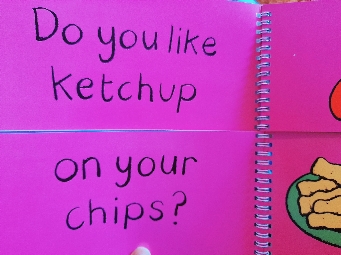 Do you like
ketchup
on your
chips?